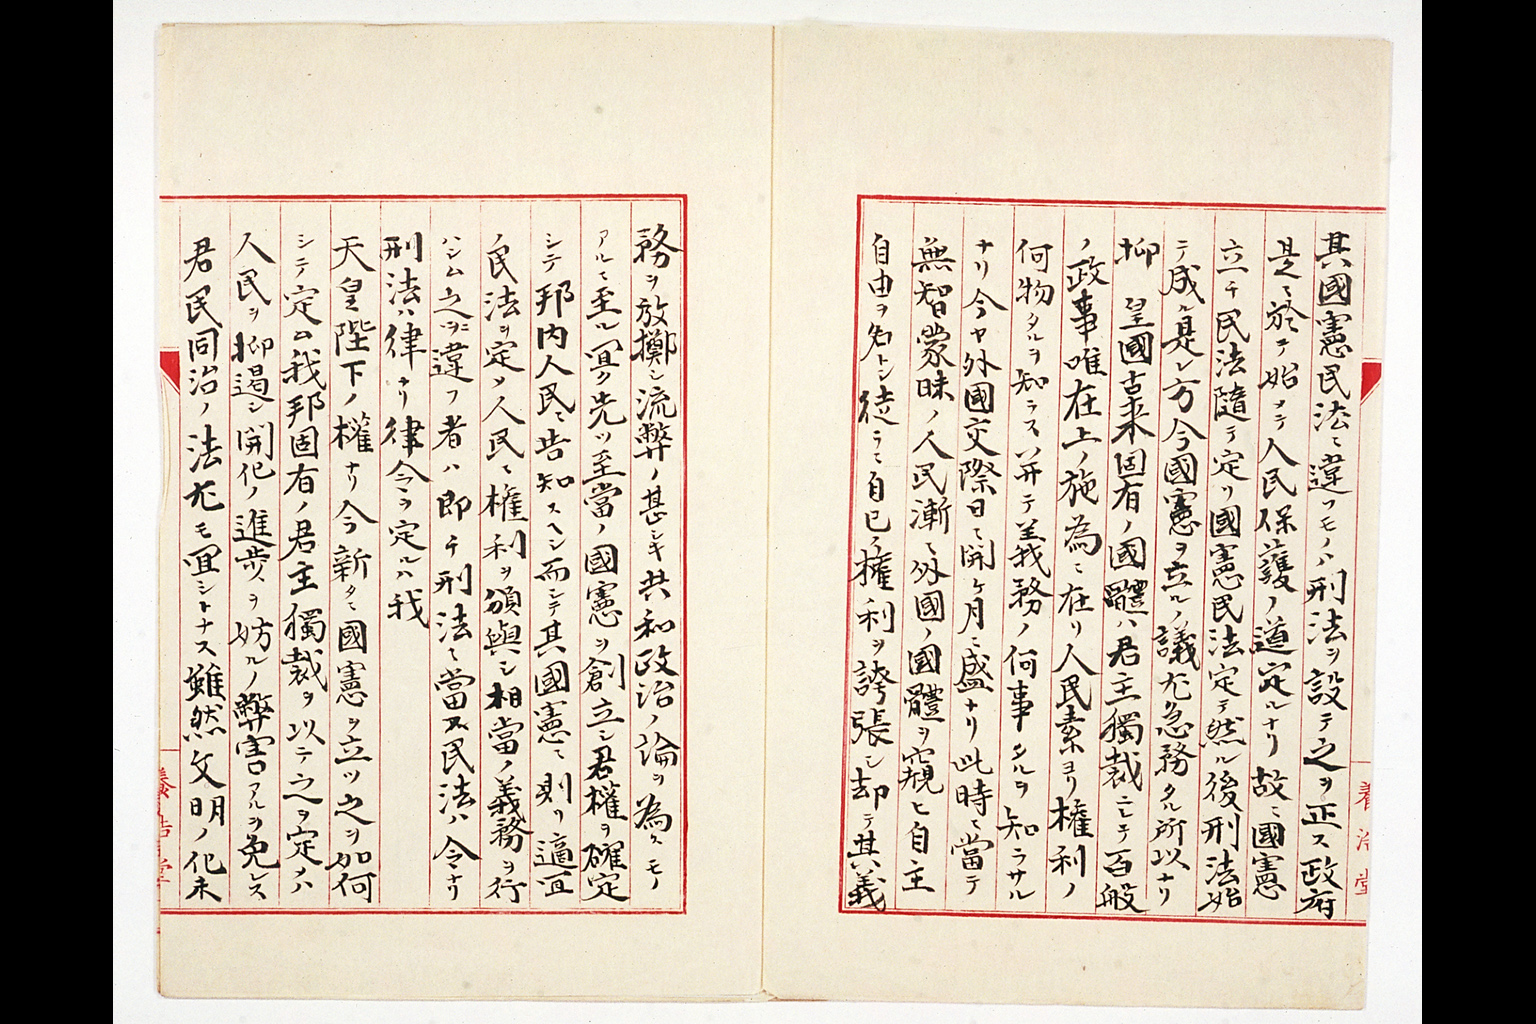 其國憲民法ニ違フモノハ刑法ヲ設テ之ヲ正ス政府
是ニ於テ始メテ人民保護ノ道定ルナリ故ニ國憲
立チ民法隨テ定リ國憲民法定テ然ル後刑法始
テ成ル是レ方今國憲ヲ立ルノ議尤急務タル所以ナリ
抑 皇國古来固有ノ國體ハ君主獨裁ニシテ百般
ノ政事唯在上ノ施為ニ在リ人民素ヨリ權利ノ
何物タルヲ知ラス并テ義務ノ何事タルヲ知ラサル
ナリ今ヤ外國交際日ニ開ケ月ニ盛ナリ此時ニ當テ
無智蒙昧ノ人民漸ク外國ノ國體ヲ窺ヒ自主
自由ヲ名トシ徒ラニ自已ノ權利ヲ誇張シ却テ其義
務ヲ放擲シ流弊ノ甚シキ共和政治ノ論ヲ為スモノ
アルニ至ル宜ク先ツ至當ノ國憲ヲ創立シ君權ヲ確定
シテ邦内人民ニ告知スヘシ而シテ其國憲ニ則リ適宜
ノ民法ヲ定メ人民ニ權利ヲ頒與シ相當ノ義務ヲ行
ハシム之ニ違フ者ハ即チ刑法ニ當ル民法ハ令ナリ
刑法ハ律ナリ律令ヲ定ルハ我
天皇陛下ノ權ナリ今新タニ國憲ヲ立ツ之ヲ如何
シテ定ム我邦固有ノ君主獨裁ヲ以テ之ヲ定メハ
人民ヲ抑遏シ開化ノ進歩ヲ妨ルノ弊害アルヲ免レス
君民同治ノ法尤モ宜シトナス雖然文明ノ化未
養浩堂